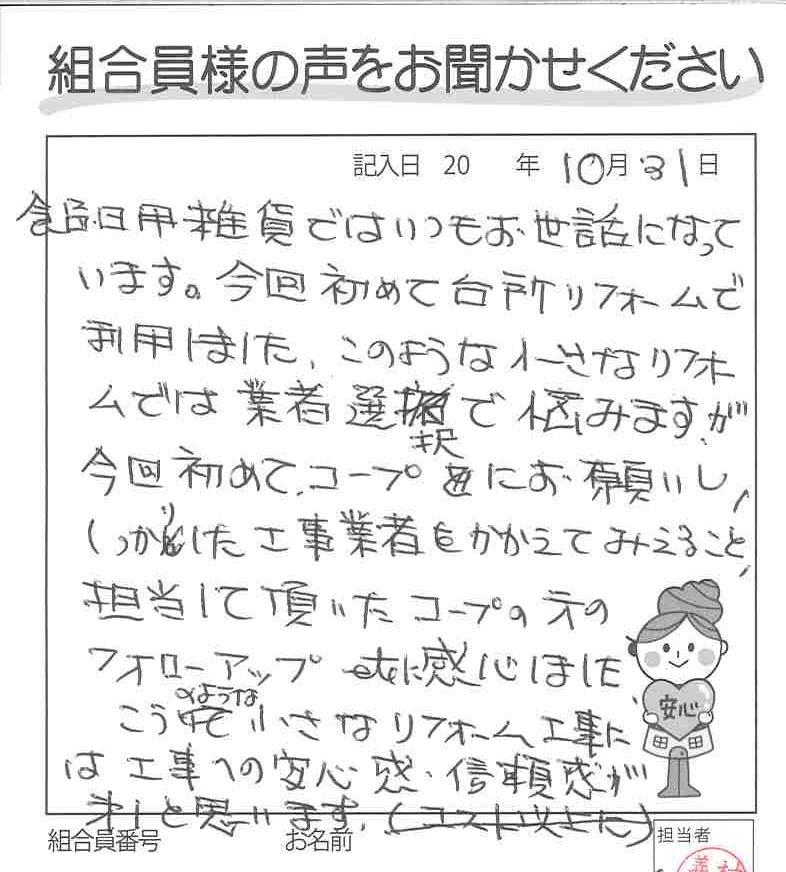 組合員様の声をお聞かせください
記入日 20 年 10月31日
食品日用雑貨ではいつもお世話になって
います。今回初めて台所リフォームで
利用しました、このような小さなリフォ
ームでは業者選択で悩みますが
今回初めて、コープにお願いし、
しっかりした工事業者をかかえてみえること、
担当して頂いたコープの方の
フォローアップetcに感心しました、
このような小さなリフォーム工事に
は工事への安心感・信頼感が
と思います。(コスト以上に)
安心
組合員番号 お名前 担当者